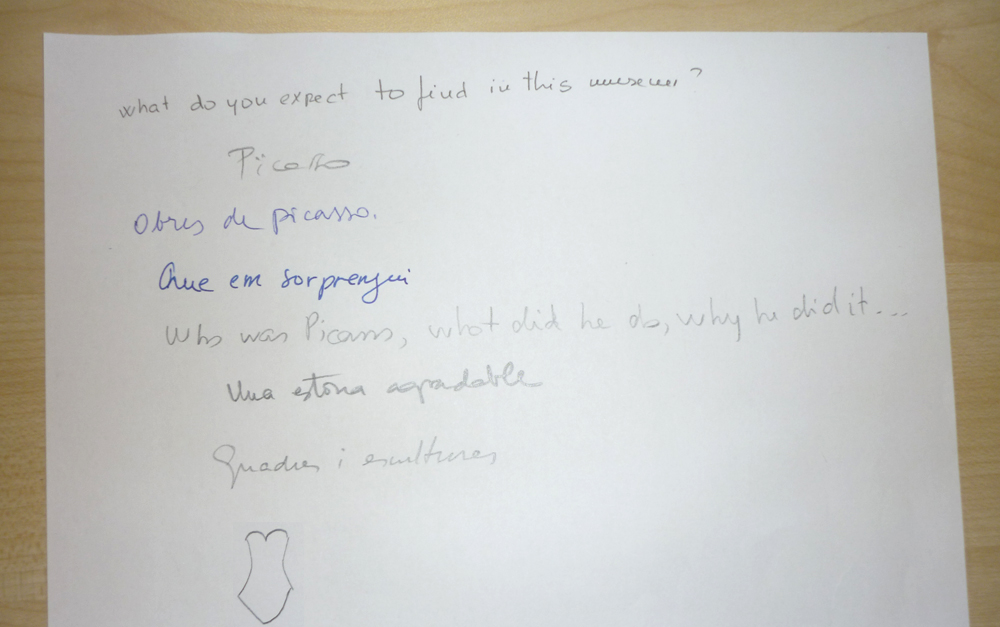 what do you expect to find in this museum?
Picasso
Obres de picasso.
Que em sorprengui
Who was Picasso, what did he do, why he did it...
Una estona agradable
Quadres i escultures